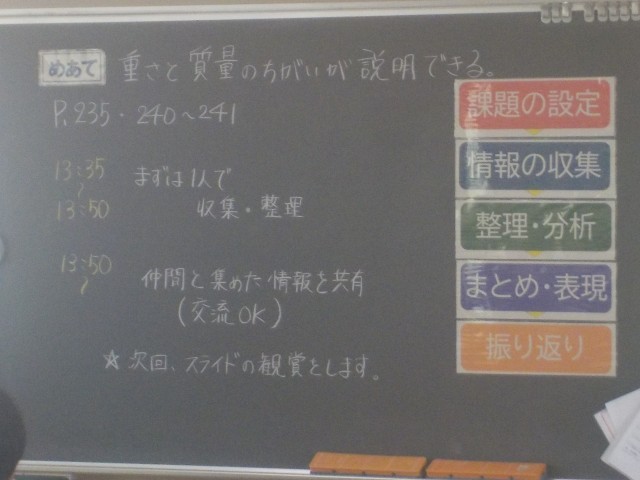 めあて 重さと質量のちがいが説明できる。
P.235・240〜241
13:35 まずは1人で
〜
13:50 収集・整理
13:50
〜 仲間と集めた情報を共有
(交流OK)
☆次回、スライドの観賞をします。
課題の設定
情報の収集
整理・分析
まとめ・表現
振り返り